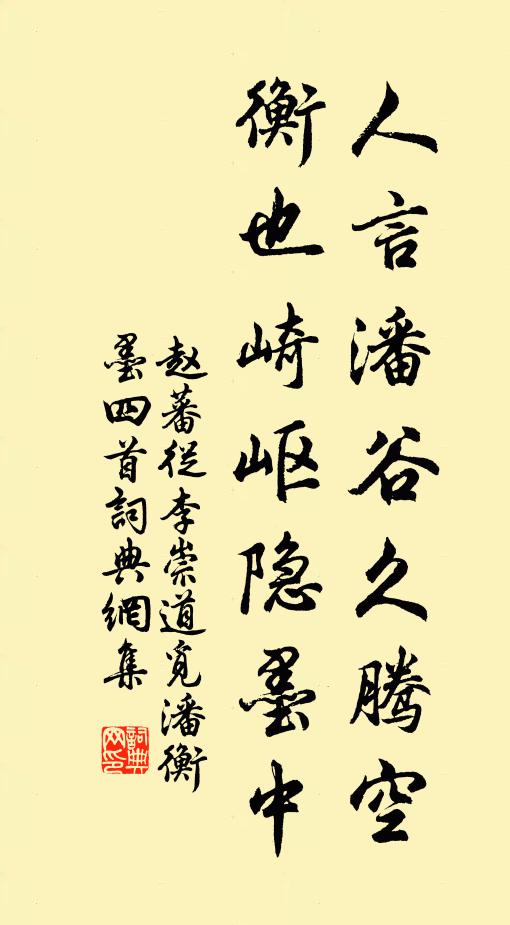 人言潘谷久腾空
衡也崎岖隐墨中
赵蕃從李崇道覓潘衡
墨四首詞典網集
詞典
网印